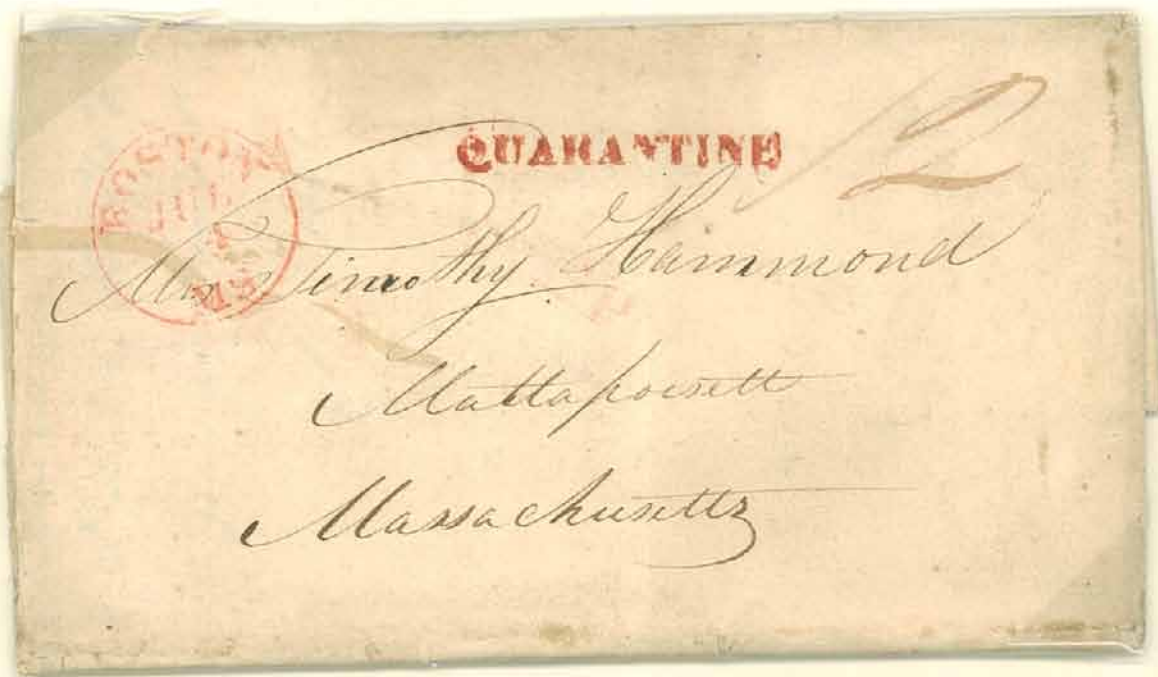 BOSTON
JUL
MS
QUARANTINE
12
Timothy Hammond
Mattapoisett
Massachusetts